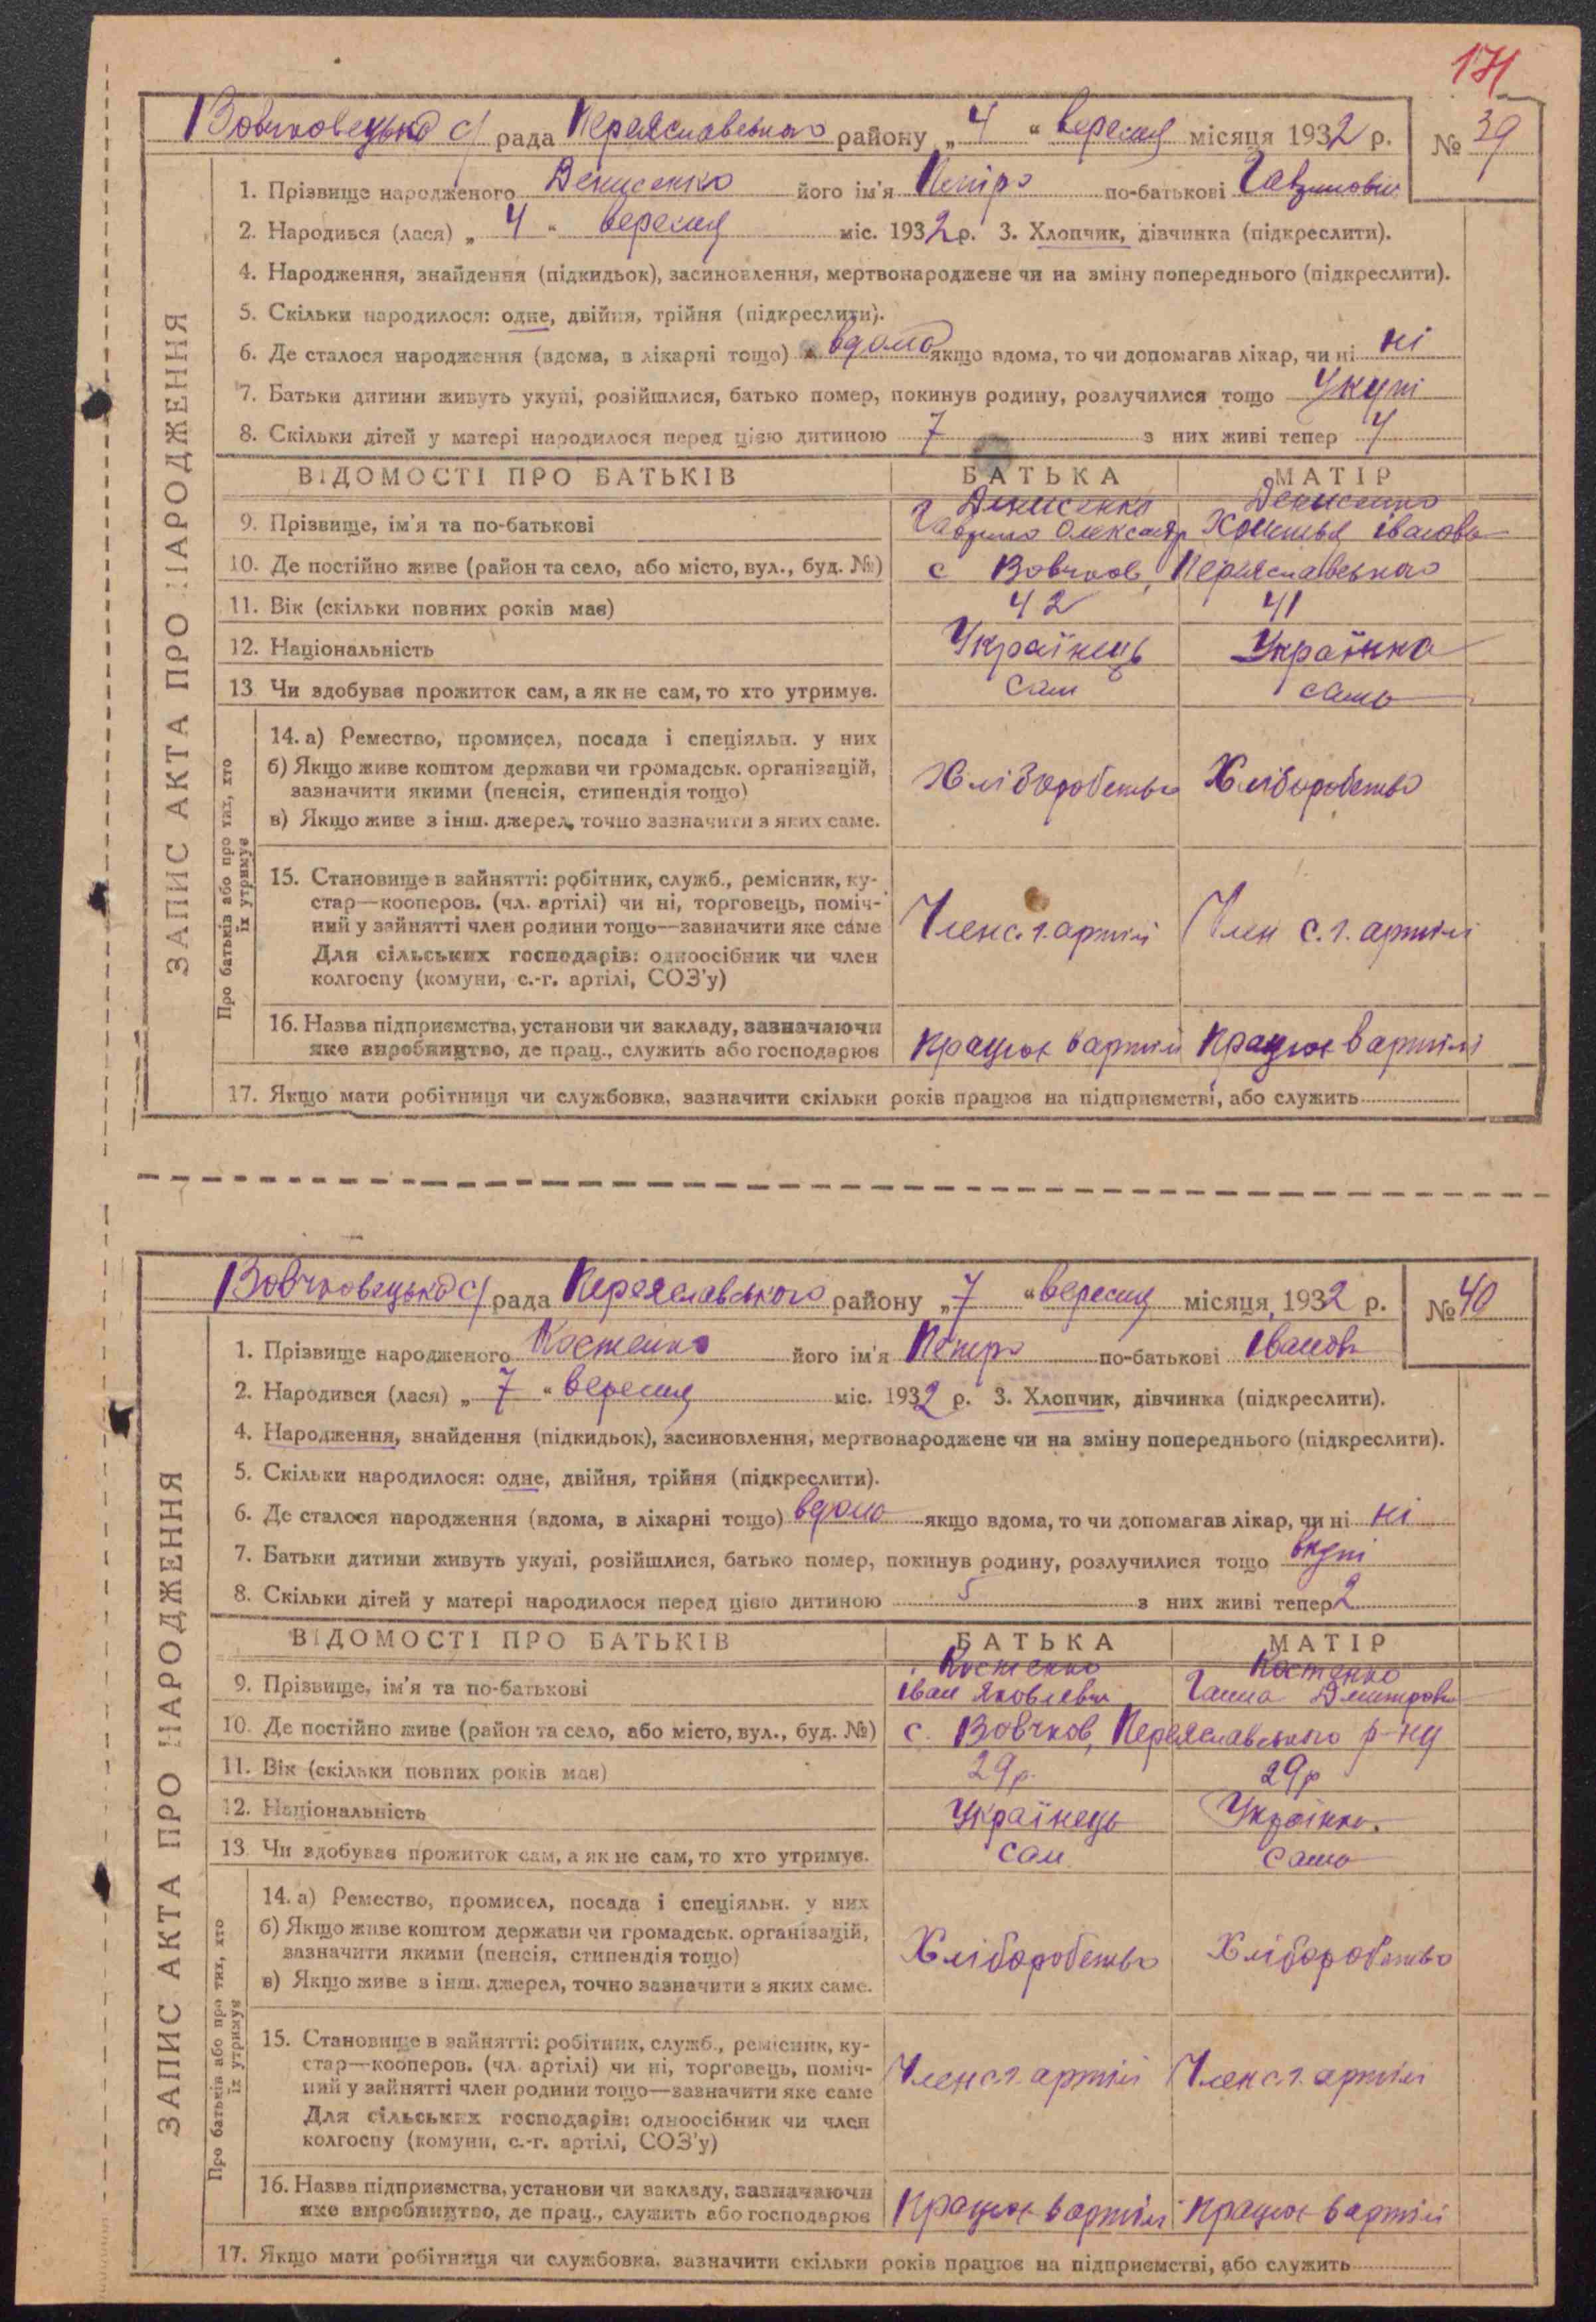 171
Вовчковецька с/ рада Переяславського району „ 4 “ вересня місяця 1932 р. № 39
1. Прізвище народженого Денисенко його ім'я Петро по-батькові Гаврилович
2. Народився (лася) „ 4 “ вересня міс. 1932 р. 3. Хлопчик, дівчинка (підкреслити).
4. Народження, знайдення (підкидьок), засиновлення, мертвонароджене чи на зміну попереднього (підкреслити).
5. Скільки народилося: одне, двійня, трійня (підкреслити).
6. Де сталося народження (вдома, в лікарні тощо) вдома якщо вдома, то чи допомагав лікар, чи ні ні
7. Батьки дитини живуть укупі, розійшлися, батько помер, покинув родину, розлучилися тощо Укупі
8. Скільки дітей у матері народилося перед цією дитиною 7 з них живі тепер 4
ВІДОМОСТІ ПРО БАТЬКІВ БАТЬКА МАТІР
Денисенко Денисенко
9. Прізвище, ім'я та по-батькові Гаврило Олександр Іванова
10. Де постійно живе (район та село, або місто, вул., буд. №) с Вовчков, Переяславського
11. Вік (скільки повних років має) 42 41
12. Національність Українець Українка
13 Чи здобуває прожиток сам, а як не сам, то хто утримує. сам сама
14. а) Ремество, промисел, посада і спеціяльн. у них
б) Якщо живе коштом держави чи громадськ. організацій,
зазначити якими (пенсія, стипендія тощо) Хліборобство Хліборобство
в) Якщо живе з інш. джерел, точно зазначити з яких саме.
15. Становище в зайнятті: робітник, служб., ремісник, ку-
стар—кооперов. (чл. артілі) чи ні, торговець, поміч-
ний у зайнятті член родини тощо—зазначити яке саме Член с.г. артілі Член с.г. артілі
Для сільських господарів: одноосібник чи член
колгоспу (комуни, с.-г. артілі, СОЗ'у)
16. Назва підприємства, установи чи закладу, зазначаючи
яке виробництво, де прац., служить або господарює Працює в артілі Працює в артілі
17. Якщо мати робітниця чи службовка, зазначити скільки років працює на підприємстві, або служить
ЗАПИС АКТА ПРО НАРОДЖЕННЯ
Про батьків або про тих, хто
їх утримує
Вовчковецька с/ рада Переяславського району „ 7 “ вересня місяця 1932 р. № 40
1. Прізвище народженого Костенко його ім'я Петро по-батькові Іванов
2. Народився (лася) „ 7 “ вересня міс. 1932 р. 3. Хлопчик, дівчинка (підкреслити).
4. Народження, знайдення (підкидьок), засиновлення, мертвонароджене чи на зміну попереднього (підкреслити).
5. Скільки народилося: одне, двійня, трійня (підкреслити).
6. Де сталося народження (вдома, в лікарні тощо) вдома якщо вдома, то чи допомагав лікар, чи ні ні
7. Батьки дитини живуть укупі, розійшлися, батько помер, покинув родину, розлучилися тощо вкупі
8. Скільки дітей у матері народилося перед цією дитиною 5 з них живі тепер 2
ВІДОМОСТІ ПРО БАТЬКІВ БАТЬКА МАТІР
Костенко Костенко
9. Прізвище, ім'я та по-батькові Іван Яковлевич Ганна Дмитров
10. Де постійно живе (район та село, або місто, вул., буд. №) с. Вовчков, Переяславського р-ну
11. Вік (скільки повних років має) 29 р. 29 р
12. Національність Українець Українка.
13 Чи здобуває прожиток сам, а як не сам, то хто утримує. сам сама
14. а) Ремество, промисел, посада і спеціяльн. у них
б) Якщо живе коштом держави чи громадськ. організацій,
зазначити якими (пенсія, стипендія тощо) Хліборобство Хліборобство
в) Якщо живе з інш. джерел, точно зазначити з яких саме.
15. Становище в зайнятті: робітник, служб., ремісник, ку-
стар—кооперов. (чл. артілі) чи ні, торговець, поміч-
ний у зайнятті член родини тощо—зазначити яке саме Член с.г. артілі Член с.г. артілі
Для сільських господарів: одноосібник чи член
колгоспу (комуни, с.-г. артілі, СОЗ'у)
16. Назва підприємства, установи чи закладу, зазначаючи
яке виробництво, де прац., служить або господарює Працює в артілі Працює в артілі
17. Якщо мати робітниця чи службовка, зазначити скільки років працює на підприємстві, або служить
ЗАПИС АКТА ПРО НАРОДЖЕННЯ
Про батьків або про тих, хто
їх утримує